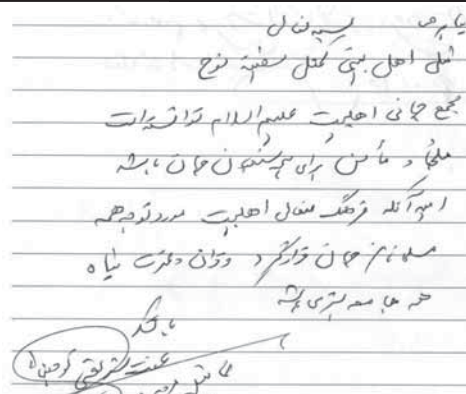 بسمه تعالی
مثل اهل بیتی کمثل سفینة نوح
مجمع جهانی اهلبیت علیهم السلام توانسته است
ملجأ و مأمن برای جهان باشد
امید آنکه فرهنگ متعالی اهلبیت مورد توجه همه
مسلمانان جهان قرار گیرد و قرآن و عترت پناه
همه جامعه بشری باشد
باتشکر